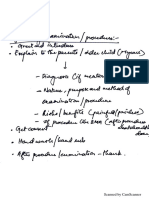 examination / procedure:-
• Greet and introduce
• Explain to the parents / older child (>7years)
→ Diagnose (if
→ Nature, purpose and method of
examination / procedure
→ Risks / benefits (painful/
of procedure
• Get consent
• Hand wash / hand rub
• After procedure / examination - thank.
Scanned by CamScanner